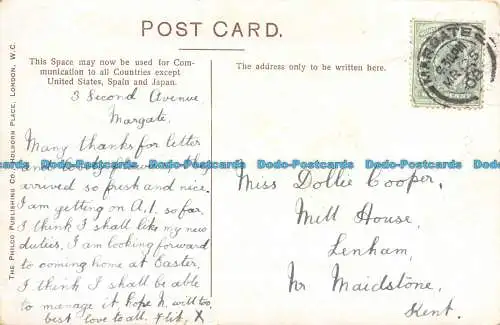 POST CARD.
This Space may now be used for Com-
munication to all Countries except
United States, Spain and Japan.
The address only to be written here.
MARGATE
3 Second Avenue
Margate.
Many thanks for letter
and lovely flowers they
arrived so fresh and nice.
I am getting on A.1. so far.
I think I shall like my new
duties. I am looking forward
to coming home at Easter.
I think I shall be able
to manage it hope N. will too
best love to all.
Miss Dollie Cooper,
Mill House,
Lenham,
Nr Maidstone,
Kent.
THE PHILCO PUBLISHING CO., HOLBORN PLACE, LONDON, W.C.
Bodo-Postcards Bodo-Postcards Bodo-Postcards Bodo-Postcards